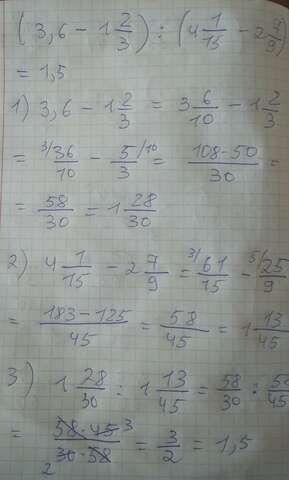 (3,6 - 1 2/3) : (4 1/15 - 2 7/9)
= 1,5
1) 3,6 - 1 2/3 = 3 6/10 - 1 2/3
= 3/ 36/10 - 5/3 /10 = (108-50)/30 =
= 58/30 = 1 28/30
2) 4 1/15 - 2 7/9 = 3/ 61/15 - 5/ 25/9
= (183-125)/45 = 58/45 = 1 13/45
3) 1 28/30 : 1 13/45 = 58/30 : 58/45
= (58·45 3)/(30·58 2) = 3/2 = 1,5